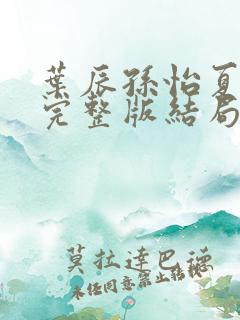 葉辰孫怡夏
完整版結局
莫拉達巴德
未经同意禁止转载